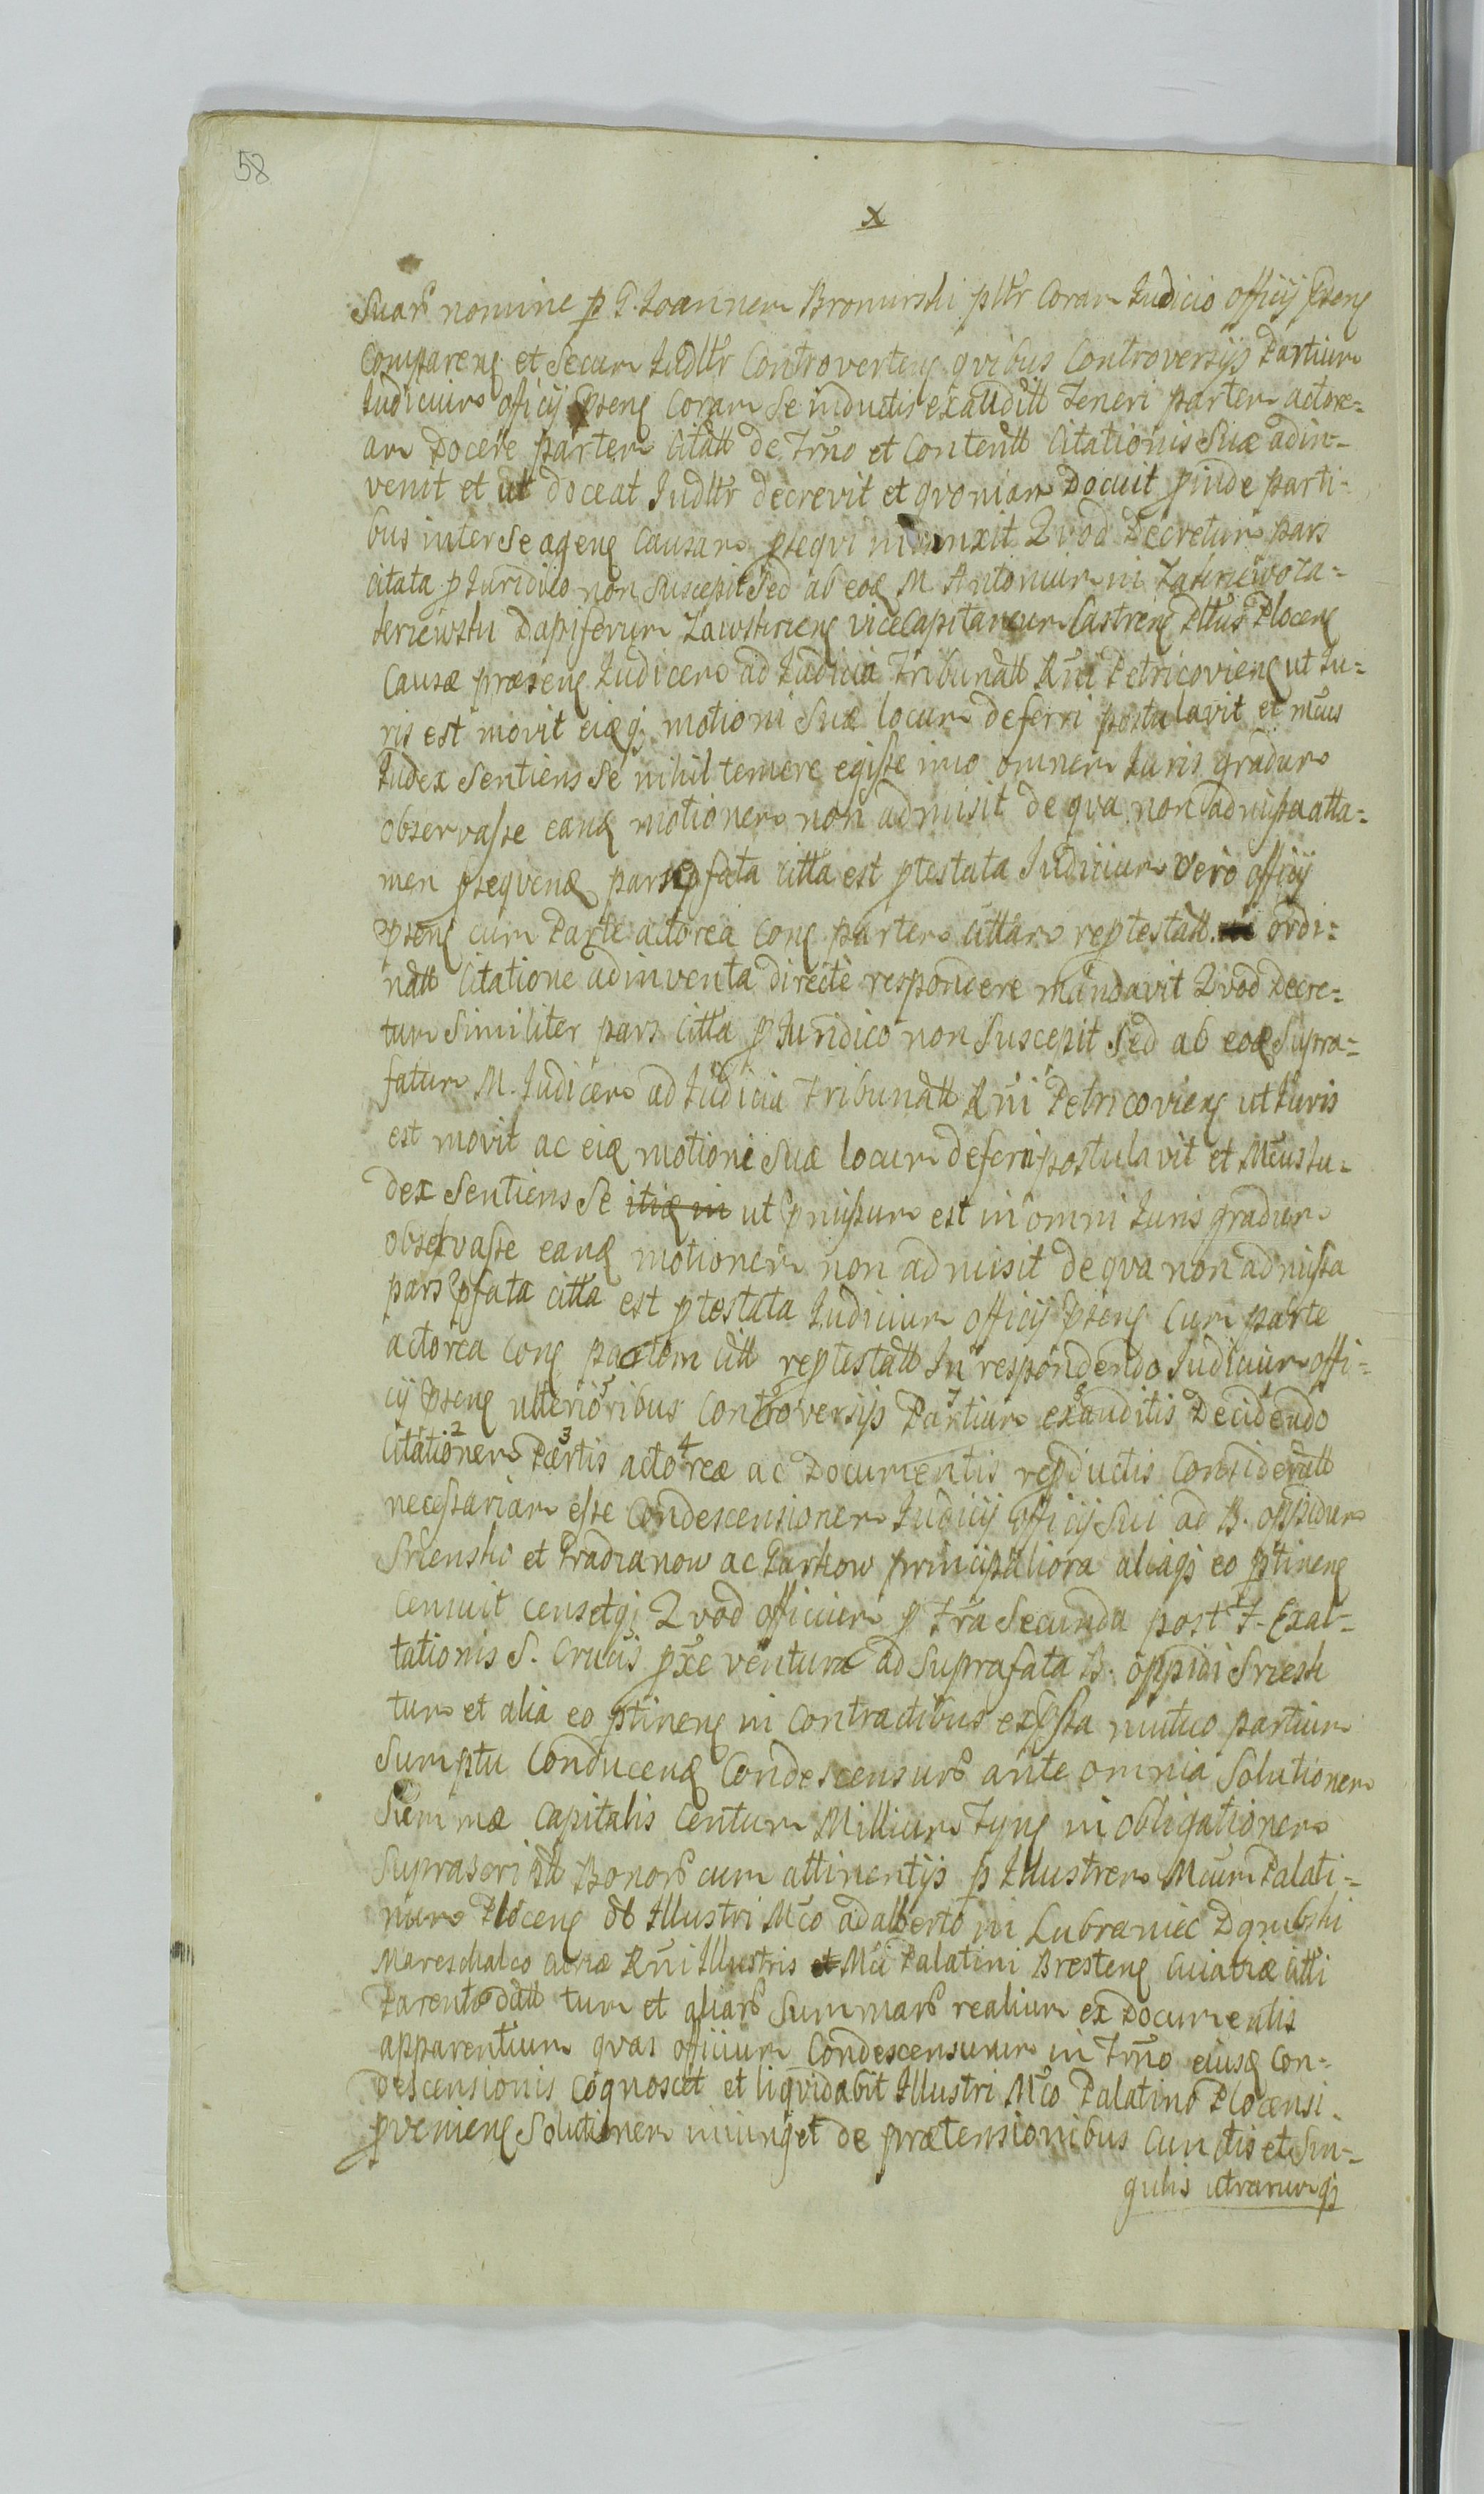 58
x
Suar̃ nomine p G. Joannem Bromirski pltr Coram Judicio officij psenꝫ
Comparenꝫ et Secum Judltr Controvertenꝫ qvibus Controversijs Partium
Judicium oficij psenꝫ Coram Se inductis exauditt Teneri partem actore=
am Docere partem Citatt de Trño et Contentt Citationis Suæ adin=
venit et ut doceat Judltr decrevit et qvoniam Docuit pinde parti=
bus inter Se agenꝫ Causam pseqvi iniunxit Qvod Decretum pars
citata p Juridico non Suscepit Sed ab eoꝫ M. Antonium in
Dapiferum Zawskrzenꝫ viceCapitaneum Castrenꝫ Pltus Plocenꝫ
Causæ præsenꝫ Judicem ad Judicia Tribunatt Rñi Petricovienꝫ ut Ju=
ris est movit eiqꝫ motioni Suæ locum deferri postulavit et mcus
Judex Sentiens Se nihil temere egisse imo omnem Juris gradum
observasse eanꝫ motionem non admisit de qva non admissa atta=
men pseqvenꝫ pars pfata citta est ptestata Judicium Vero officij
psenꝫ cum Parte actorea Conꝫ partem cittam reptestatt ordi=
natt Citatione adinventa directe respondere mandavit Qvod Decre=
tum Similiter pars Citta p Juridico non Suscepit Sed ab eoꝫ Supra=
fatum M. Judicem ad Judicia Tribunatt Rñi Petricovienꝫ ut Juris
est movit ac eiꝫ motioni Suæ locum deferri postulavit et Mcus Ju=
dex Sentiens Se itiꝫ in ut pmissum est in omni Juris gradum
observasse eanꝫ motionem non admisit de qva non admissa
pars pfata citta est ptestata Judicium officij psenꝫ Cum parte
actorea Conꝫ partem citt reptestatt In respondendo Judicium offi=
cij psenꝫ ulterioribus 5 Controversijs 6 Partium 7 exauditis 8 Decidendo 1
Citationem 2 Partis 3 actoreæ 4 ac Documentis reproductis Consideratt
necessariam esse Condescensionem Judicij officij Sui ad B. oppidum
Sriensko et Gradzanow ac Zarkow principaliora aliaqꝫ eo ptinenꝫ
Censuit censetqꝫ Qvod officium p Fra Secunda post F. Exal=
tationis S. Crucis pxe ventura ad Suprafata B. oppidi Sriesk
tum et alia eo ptinenꝫ in Contractibus expssa mutuo partium
Sumptu Conducenꝫ Condescensur̃ ante omnia Solutionem
Summæ Capitalis Centum Millium Fynꝫ in obligationem
Suprascriptt Bonor̃ cum attinentijs p Illustrem Mcum Palati=
num Plocenꝫ ab Illustri Mco adalberto in Lubraniec Dąmbski
Mareschalco curiæ Rñi Illustris et Mci Palatini Brestenꝫ Cuiaviæ citti
Parente datt tum et aliar̃ Summar̃ realium ex Documentis
apparentium qvas officium Condescensurum in Trño eiusꝫ Con=
descensionis Cognoscet et liqvidabit Illustri Mco Palatino Plocensi
pvenienꝫ Solutionem iniunget de prætensionibus Cunctis et Sin=
gulis utrarumqꝫ